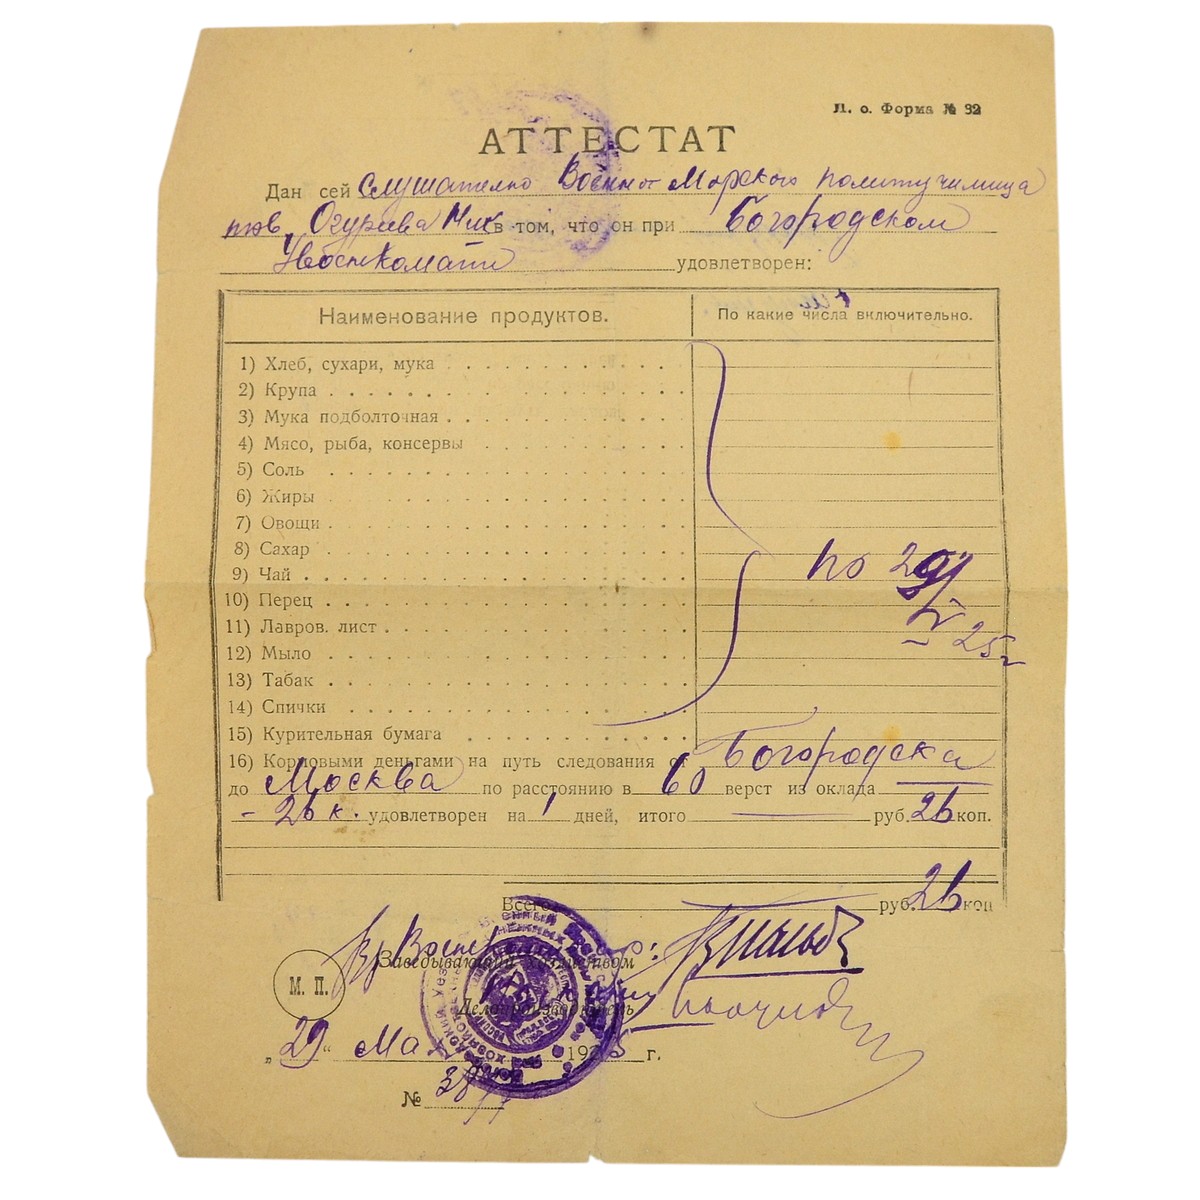 Л. о. Форма № 32
АТТЕСТАТ
Дан сей Слушателю Военно Морского политучилища
тов. Огурева Ник в том, что он при Богородском
Увоенкомате удовлетворен:
Наименование продуктов. По какие числа включительно.
1) Хлеб, сухари, мука
2) Крупа
3) Мука подболточная
4) Мясо, рыба, консервы
5) Соль
6) Жиры
7) Овощи
8) Сахар
9) Чай
по 29/V 25г
10) Перец
11) Лавров. лист
12) Мыло
13) Табак
14) Спички
15) Курительная бумага
16) Кормовыми деньгами на путь следования от Богородска
до Москва по расстоянию в 60 верст из оклада
- 26 к. удовлетворен на 1 дней, итого руб. 26 коп.
Всего руб. 26 коп
Заведывающий хозяйством
М. П.
Делопроизводитель
„29“ Мая 1925 г.
№